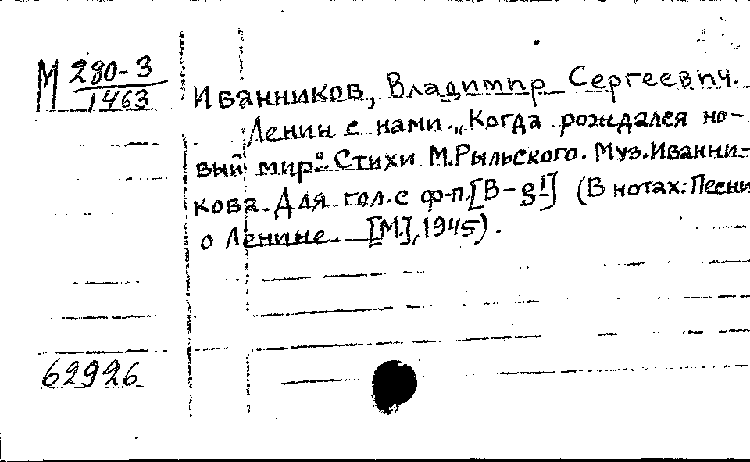 М 280-3
1463
Иванников, Владимир Сергеевич.
Ленин с нами. „Когда рождался но-
вый мир". Стихи М. Рыльского. Муз. Иванни-
кова. Для гол. с ф-п. [В-g¹] (В нотах: Песни
о Ленине. [М], 1945).
62926